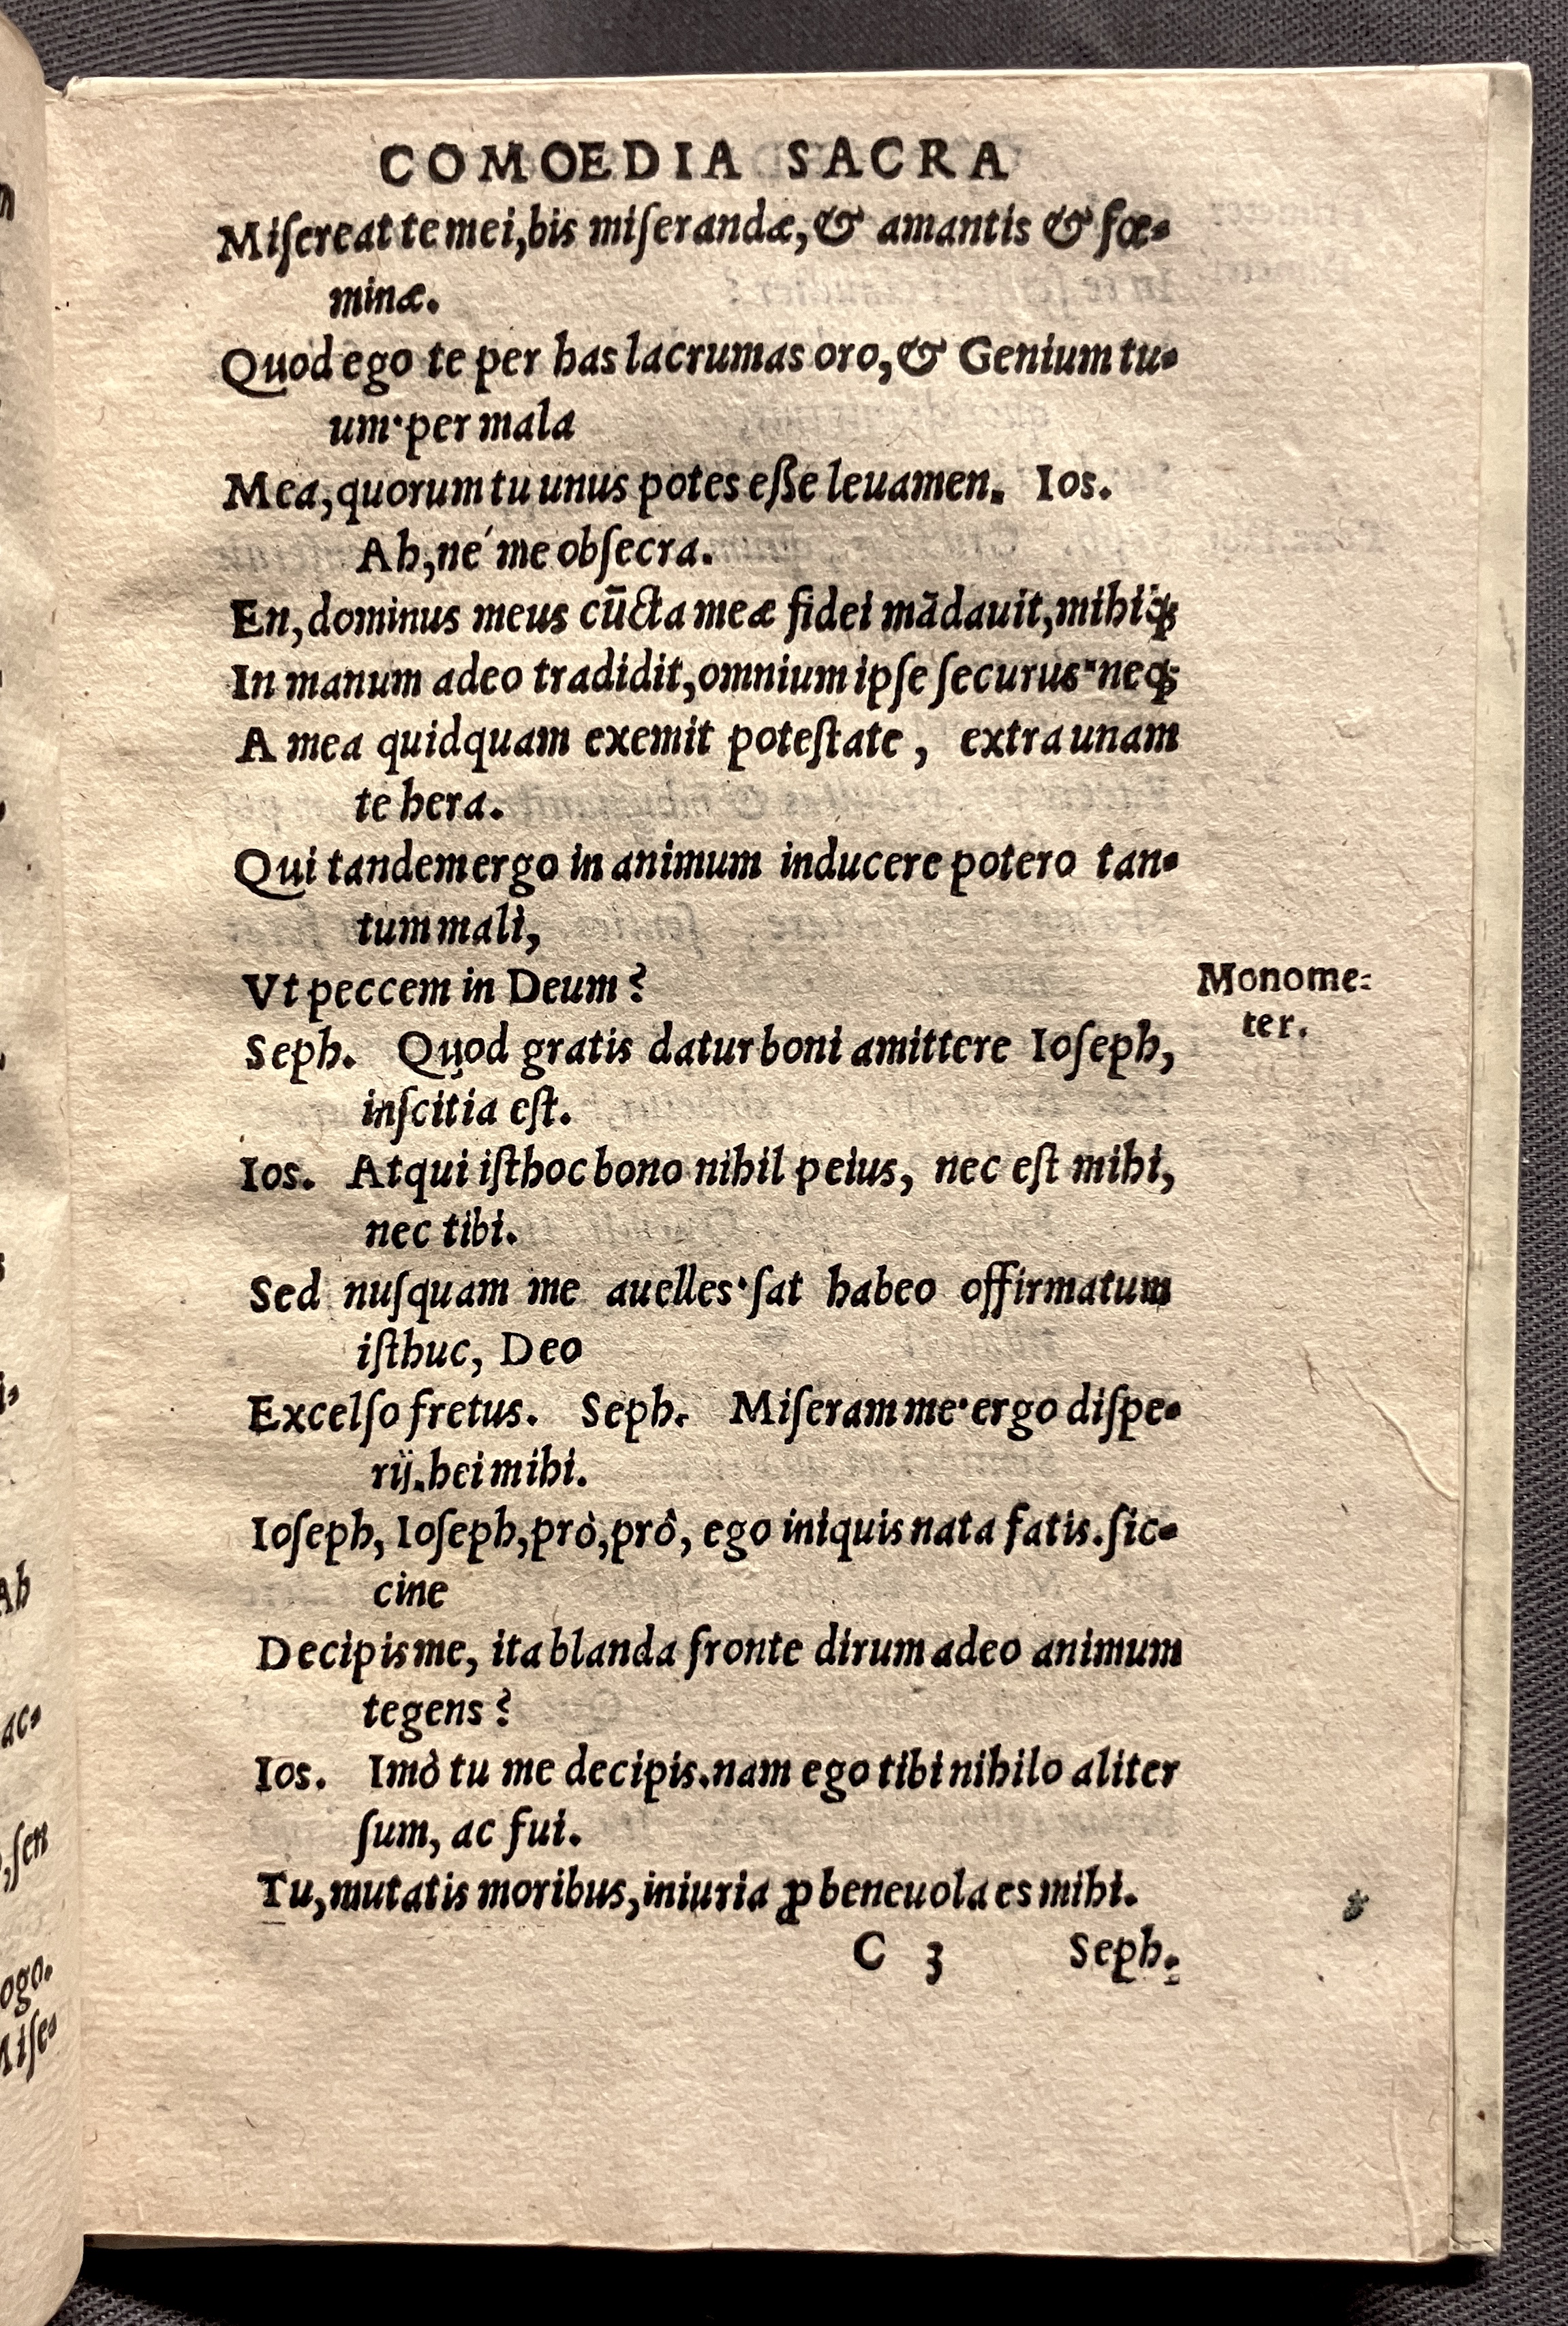 COMOEDIA SACRA
Miſereat te mei, bis miſerandæ, & amantis & fœ-
minæ.
Quod ego te per has lacrumas oro, & Genium tu-
um·per mala
Mea, quorum tu unus potes eſſe leuamen. Ios.
Ah, ne´ me obſecra.
En, dominus meus cūcta meæ fidei mādauit, mihiq́;
In manum adeo tradidit, omnium ipſe ſecurus·neq;
A mea quidquam exemit poteſtate, extra unam
te hera.
Qui tandem ergo in animum inducere potero tan-
tum mali,
Vt peccem in Deum?
Monome-
ter.
Seph. Quod gratis datur boni amittere Ioſeph,
inſcitia eſt.
Ios. Atqui iſthoc bono nihil peius, nec eſt mihi,
nec tibi.
Sed nuſquam me auelles·ſat habeo offirmatum
iſthuc, Deo
Excelſo fretus. Seph. Miſeram me·ergo diſpe-
rij. hei mihi.
Ioſeph, Ioſeph, prò, prô, ego iniquis nata fatis. ſic-
cine
Decipis me, ita blanda fronte dirum adeo animum
tegens?
Ios. Imò tu me decipis. nam ego tibi nihilo aliter
ſum, ac fui.
Tu, mutatis moribus, iniuria ꝓ beneuola es mihi.
C 3 Seph.